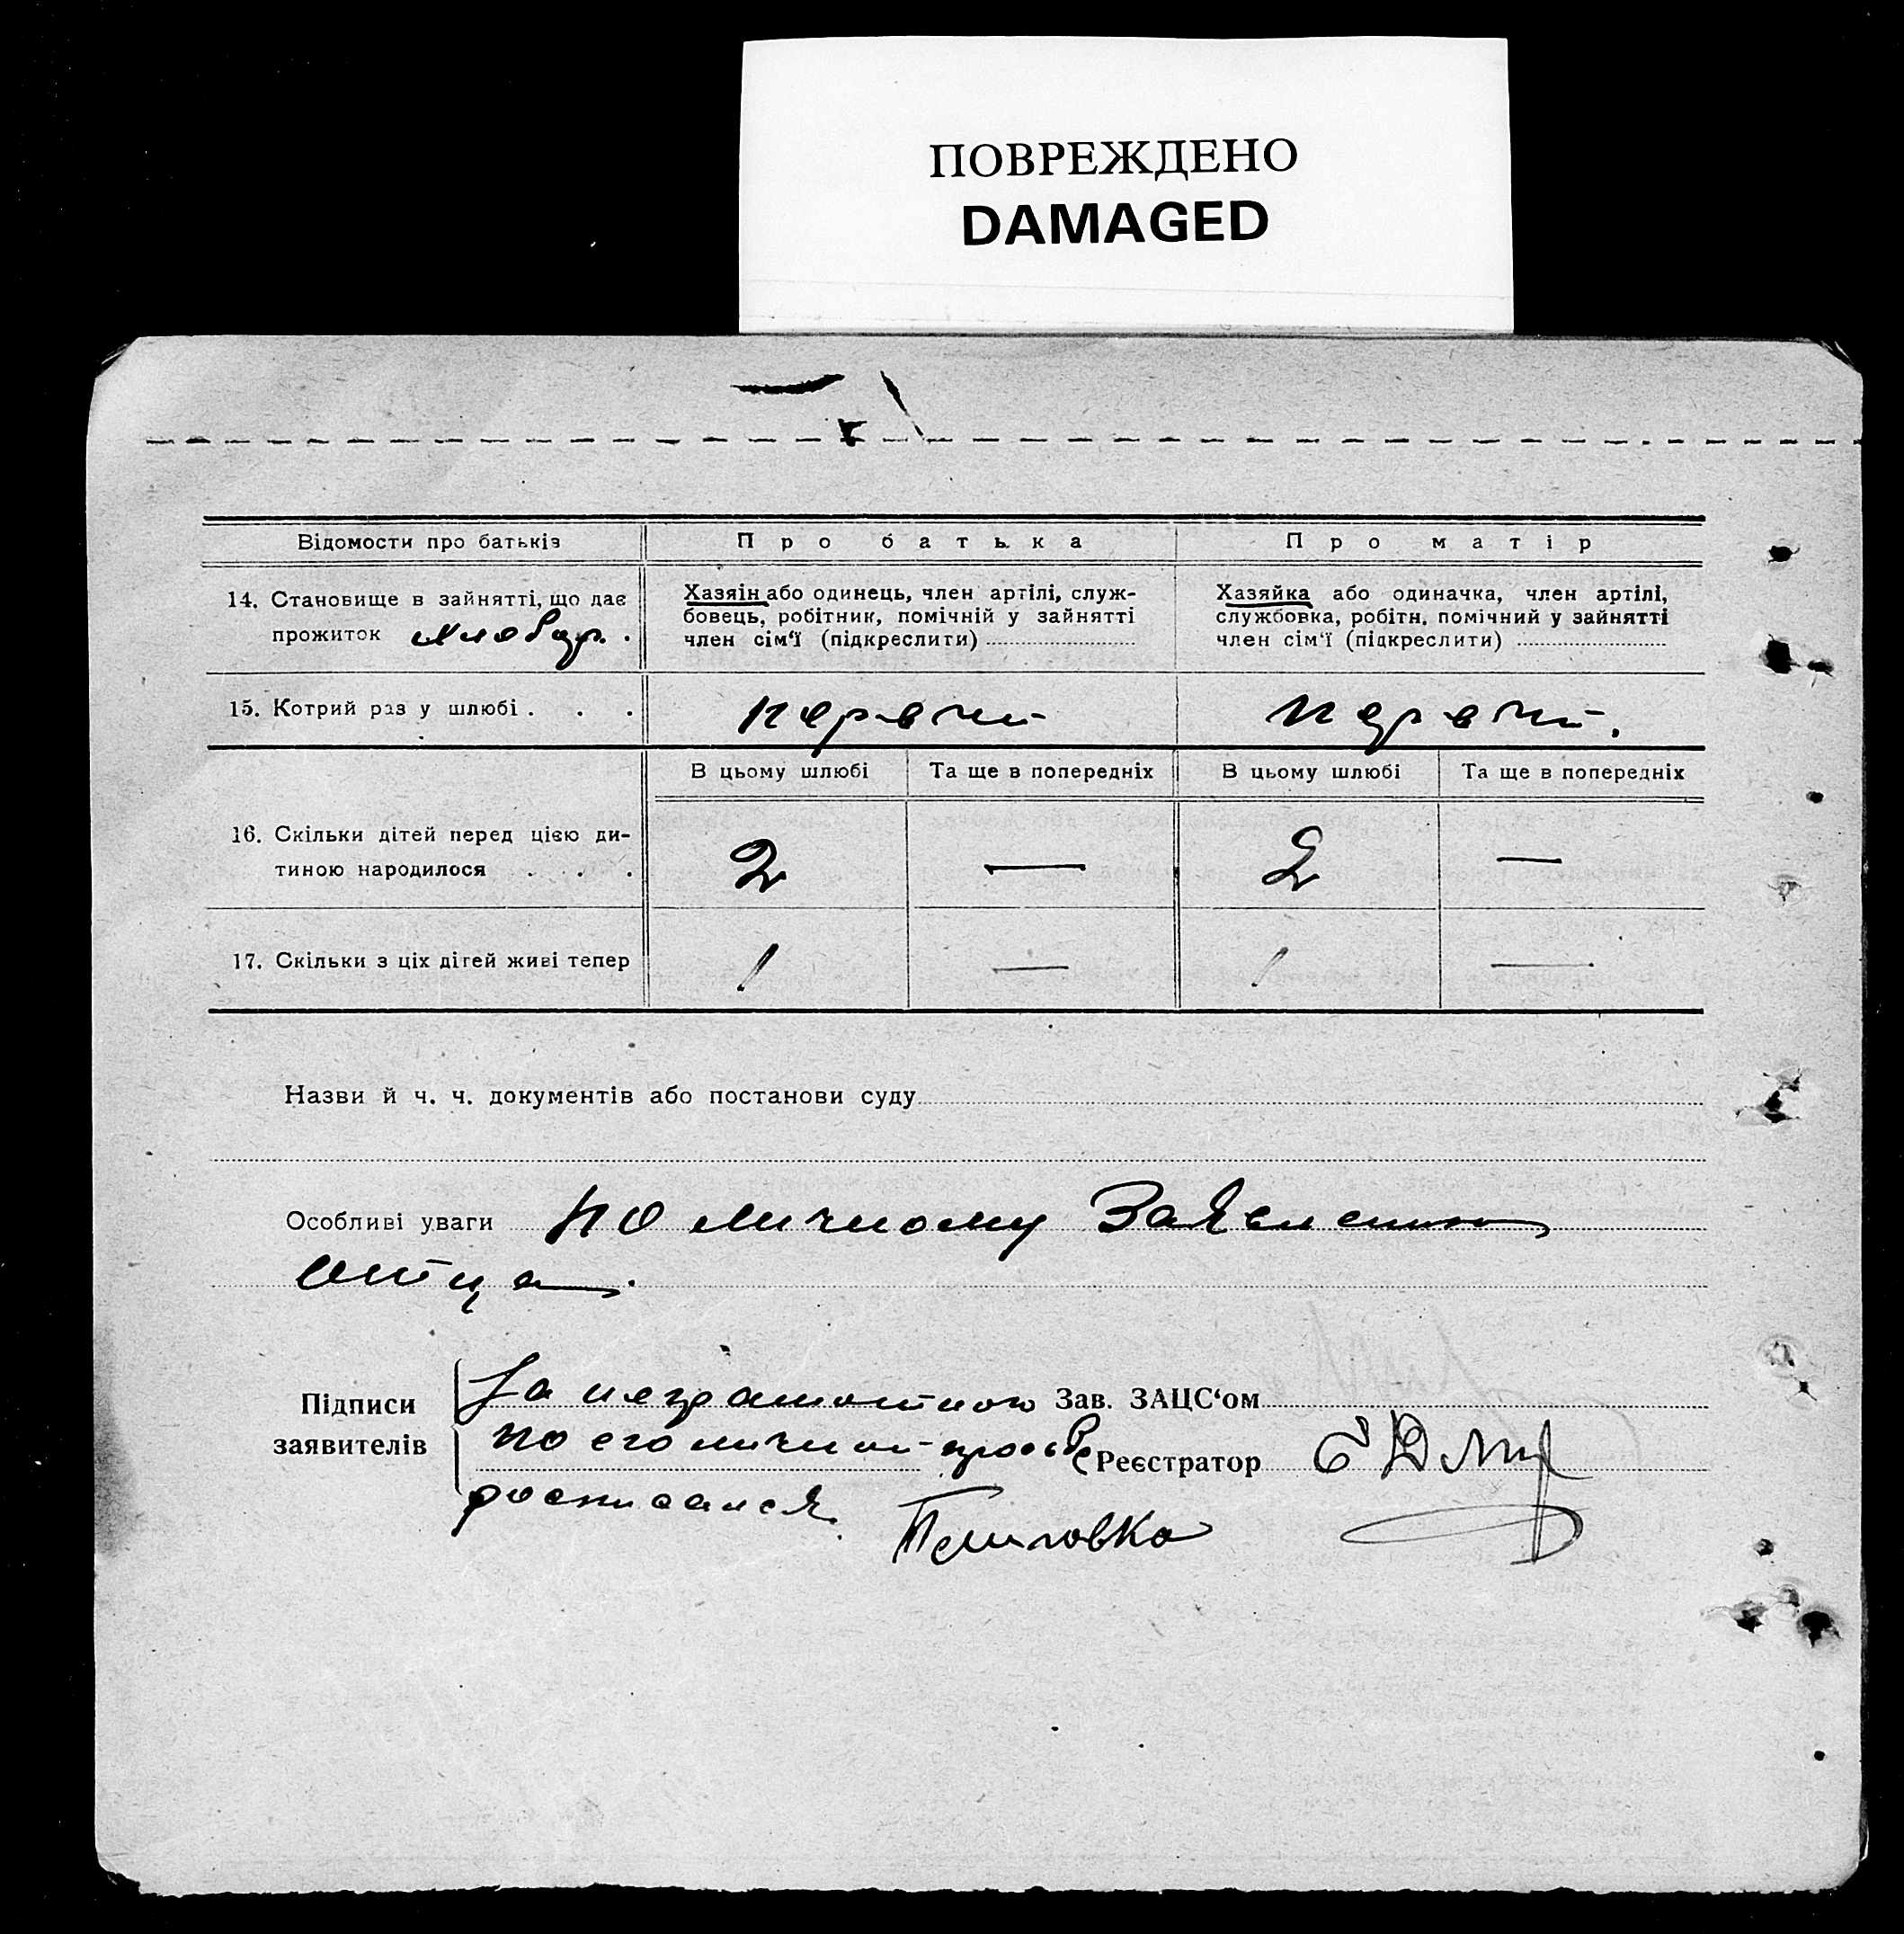 ПОВРЕЖДЕНО
DAMAGED
Відомости про батьків
Про батька
Про матір
14. Становище в зайнятті, що дає
прожиток
Хазяїн або одинець, член артілі, служ-
бовець, робітник, помічній у зайнятті
член сім'ї (підкреслити)
Хазяйка або одиначка, член артілі,
службовка, робітн. помічний у зайнятті
член сім'ї (підкреслити)
15. Котрий раз у шлюбі . . .
первий
первий.
В цьому шлюбі
Та ще в попередніх
В цьому шлюбі
Та ще в попередніх
16. Скільки дітей перед цією ди-
тиною народилося . . .
2
—
2
—
17. Скільки з ціх дітей живі тепер
1
—
1
—
Назви й ч. ч. документів або постанови суду
Особливі уваги по личному Заявлению
отца.
Підписи
заявителів
За неграмотного
по его личной просьбе
росписался.
Зав. ЗАЦС'ом
Реєстратор